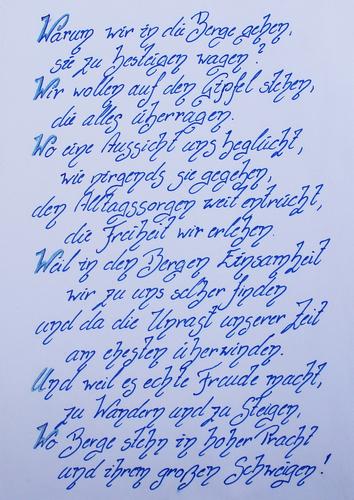 Warum wir in die Berge gehen,
sie zu besteigen wagen?
Wir wollen auf den Gipfel stehen,
die alles überragen.
Wo eine Aussicht uns beglückt,
wie nirgends sie gegeben,
den Alltagssorgen weit entrückt,
die Freiheit wir erleben.
Weil in den Bergen Einsamheit
wir zu uns selber finden
und da die Unrast unserer Zeit
am ehesten überwinden.
Und weil es echte Freude macht,
zu Wandern und zu Steigen,
Wo Berge stehn in hoher Pracht
und ihrem großen Schweigen!